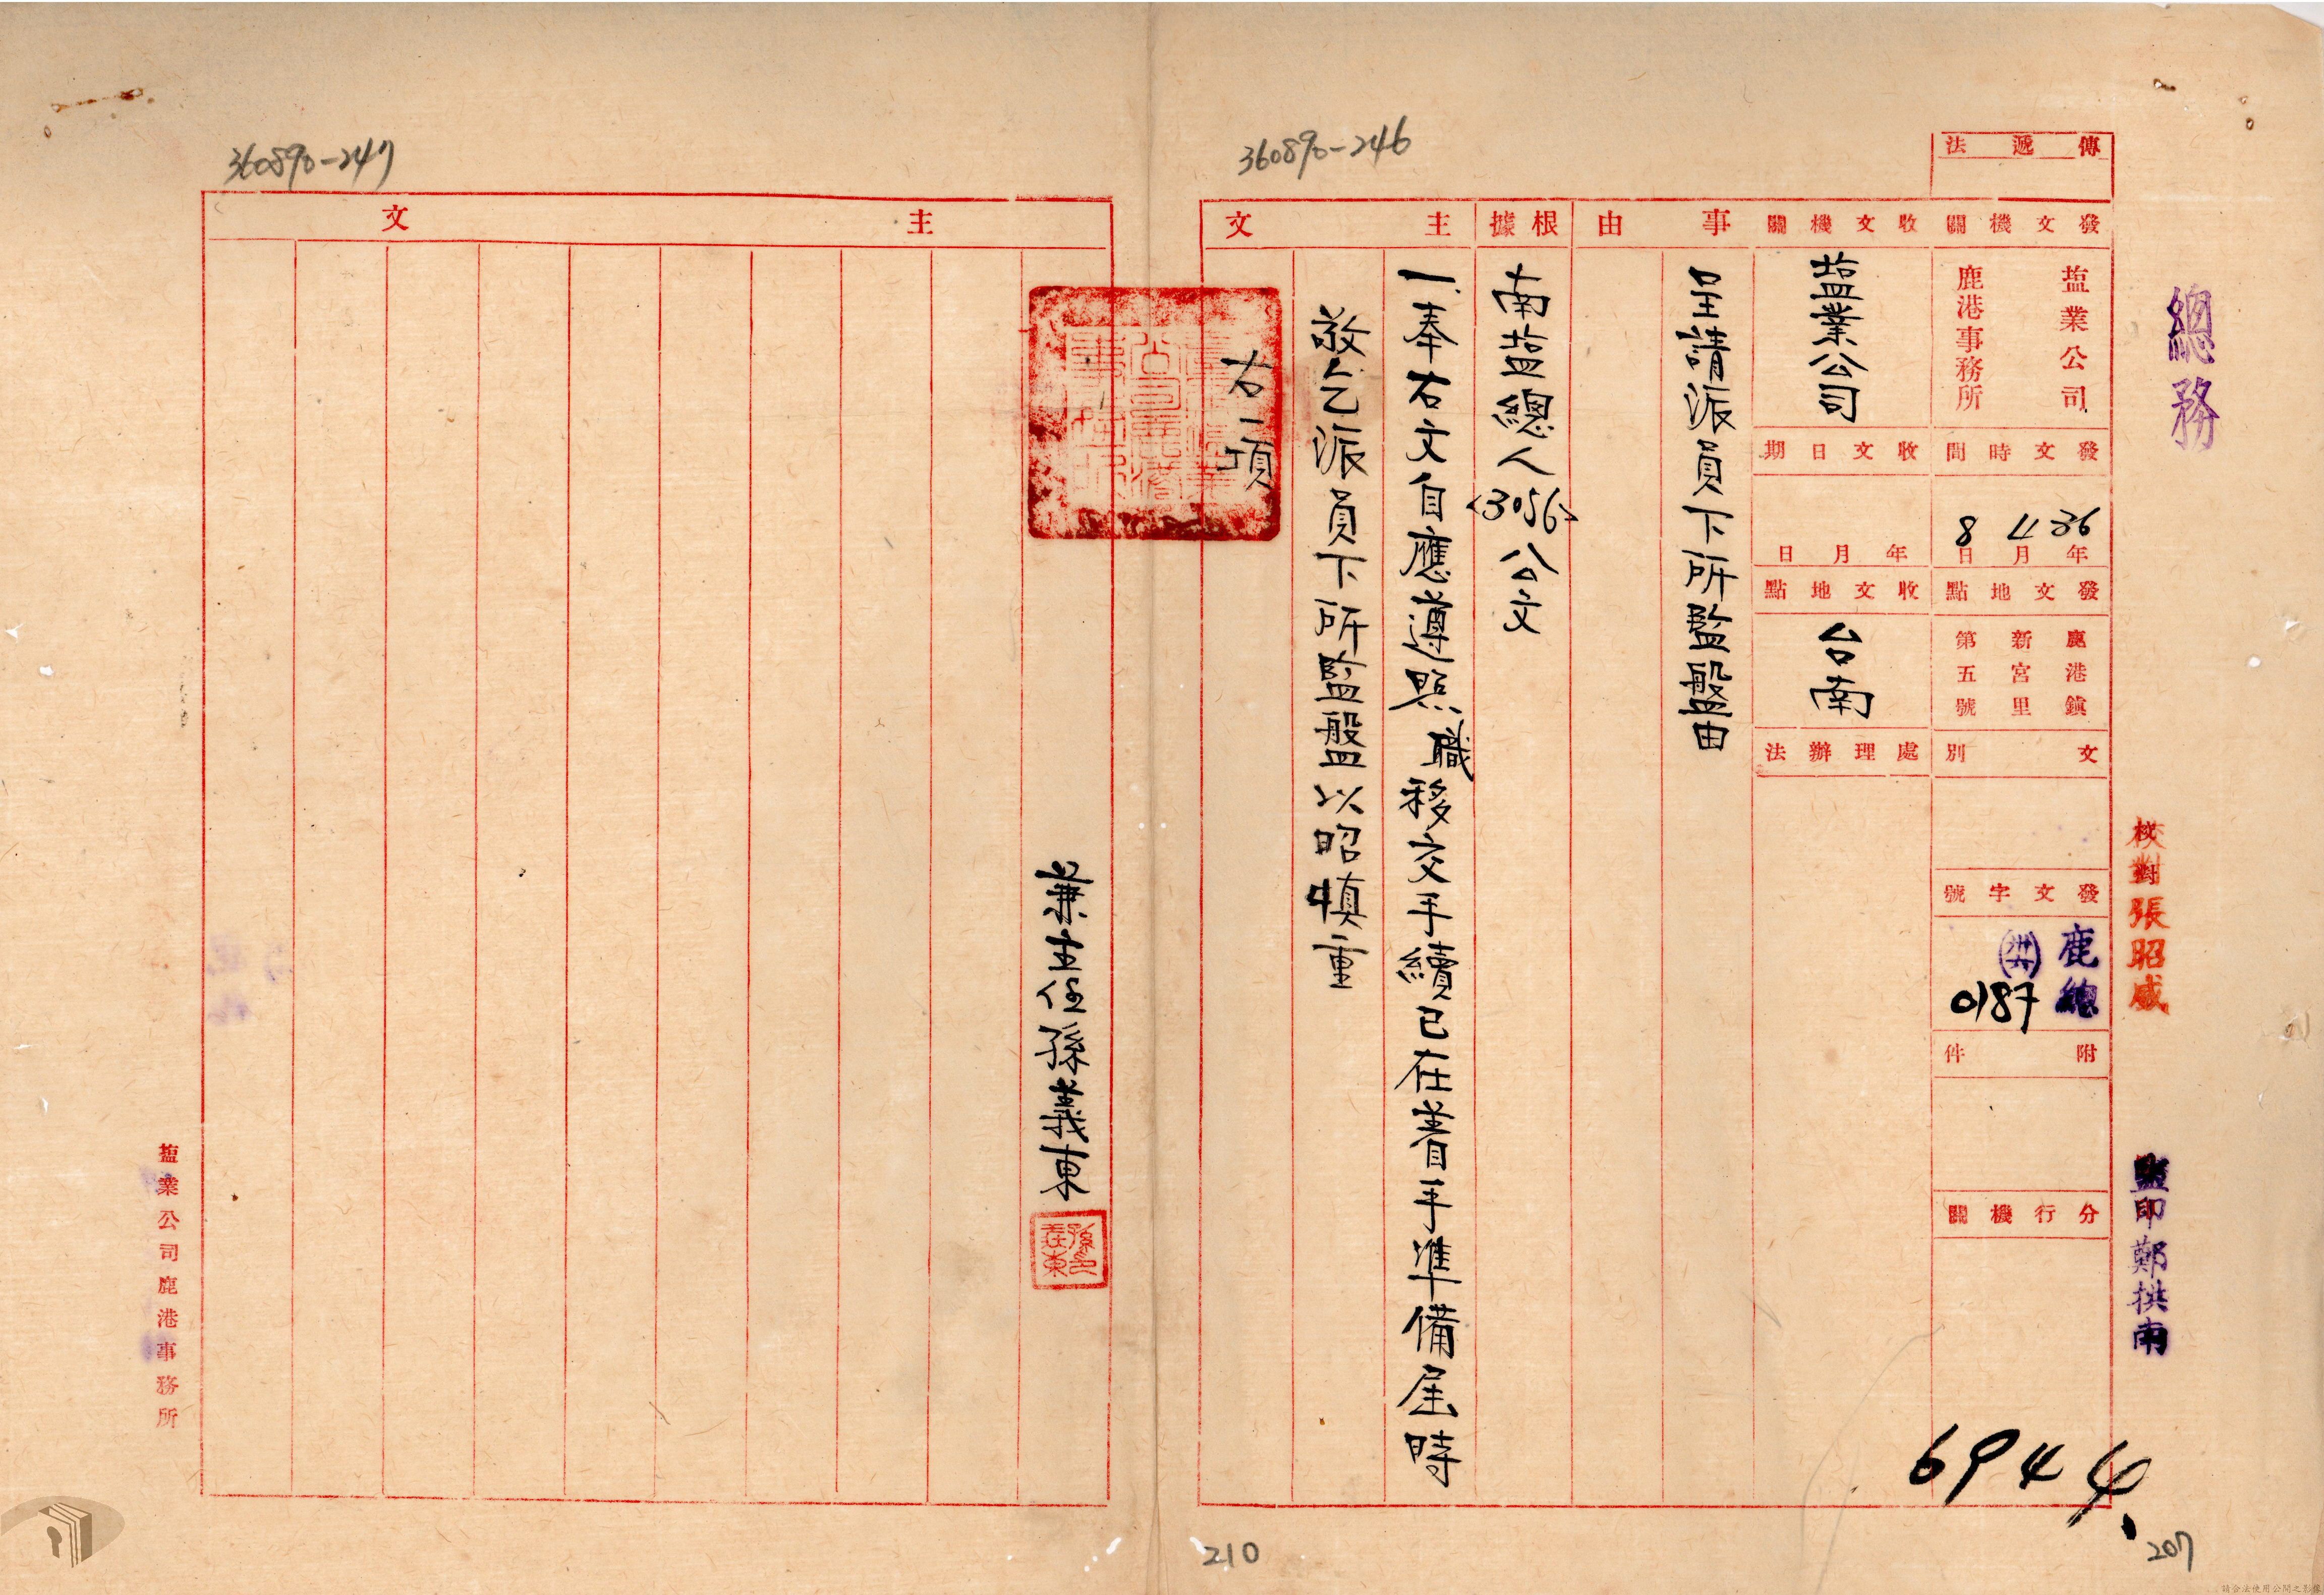 360890-246
360890-247
總務
傳遞法
發文機關
塩業公司
鹿港事務所
發文時間
36年11月8日
發文地點
鹿港鎮
新宮里
第五號
文別
發文字號
鹿總
0187
附件
分行機關
收文機關
塩業公司
收文日期
年月日
收文地點
台南
處理辦法
事由
呈請派員下所監盤由
根據
南塩總人<3056>公文
主文
一.奉右文自應遵照職移交手續已在着手準備屆時
敬乞派員下所監盤以昭慎重
右一項
主文
兼主任孫義東
塩業公司鹿港事務所
校對張昭威
監印鄭拱南
6944
210
207
請合法使用公開之影像